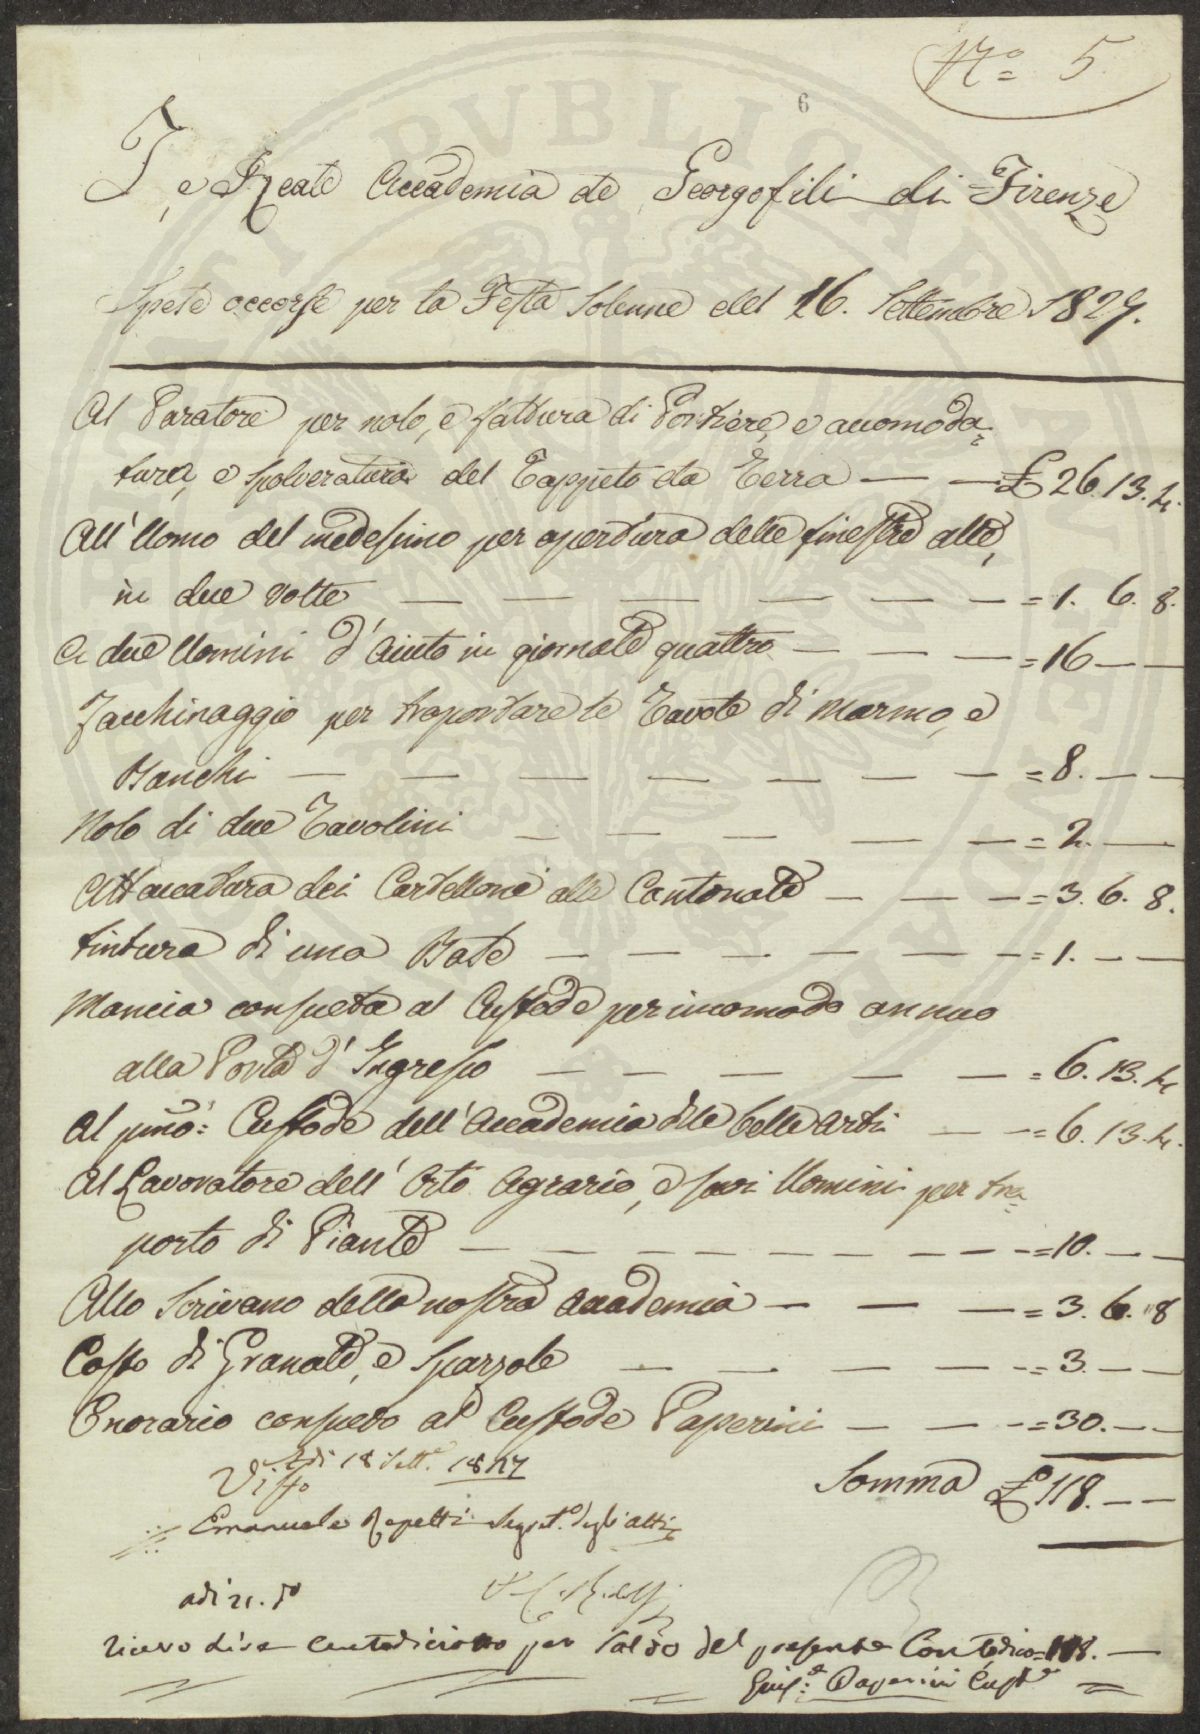 N.o = 5.
6
I. e Reale Accademia de Georgofili di Firenze
Spese occorse per la Festa Solenne del 16. Settembre 1827.
Al Paratore per nolo, e fattura di Portiere, e accomoda=
tura, e spolveratura del Tappeto da Terra — — £ 26. 13. 4.
All'Uomo del medesimo per apertura delle finestre alte,
in due volte — — — — — — = 1. 6. 8.
A due Uomini d'aiuto in giornate quattro — — — = 16 — —
Facchinaggio per traportare le Tavole di marmo, e
Banchi — — — — — — — = 8. — —
Nolo di due Tavolini — — — — — = 2. —
Attaccatura dei Cartelloni alle Cantonate — — — = 3. 6. 8.
tintura di una Base — — — — — — = 1. — —
Mancia consueta al Custode per incomodo annuo
alla Porta d'Ingresso — — — — — = 6. 13. 4
Al pmo: Custode dell'Accademia delle belle Arti — — = 6. 13. 4.
Al Lavoratore dell'Orto Agrario, e suoi Uomini per tra=
porto di Piante — — — — — — — — = 10. — —
Allo Scrivano della nostra Accademia — — — = 3. 6. 8
Costo di Granate, e Spazzole — — — — = 3. — —
Onorario consueto al Custode Paperini — — — = 30. — —
Adi 18 Sett.e 1827
Visto
Somma £ 118. — —
Emanuele Repetti Segret.o degli atti
adi 21. d.o
ricevo lire centodiciotto per saldo del presente Conto, dico = 118. —
Gius.e Paperini Cust.e